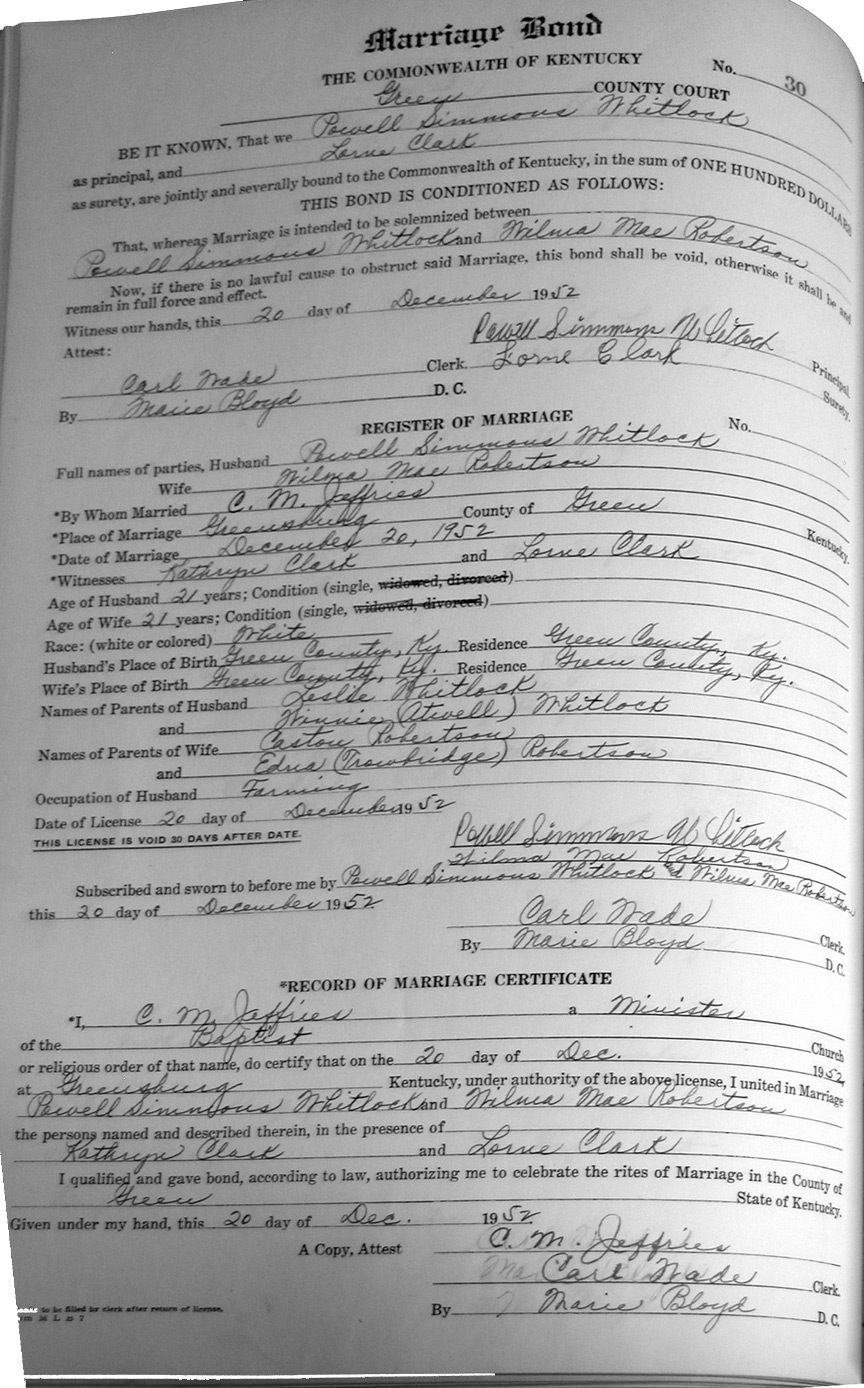 Marriage Bond
THE COMMONWEALTH OF KENTUCKY No. 30
Green COUNTY COURT
BE IT KNOWN, That we Powell Simmons Whitlock
as principal, and Lorne Clark
as surety, are jointly and severally bound to the Commonwealth of Kentucky, in the sum of ONE HUNDRED DOLLARS
THIS BOND IS CONDITIONED AS FOLLOWS:
That, whereas Marriage is intended to be solemnized between
Powell Simmons Whitlock and Wilma Mae Robertson
Now, if there is no lawful cause to obstruct said Marriage, this bond shall be void, otherwise it shall be and
remain in full force and effect.
Witness our hands, this 20 day of December 1952
Attest: Powell Simmons Whitlock Principal.
Carl Wade Clerk. Lorne Clark Surety.
By Marie Bloyd D. C.
REGISTER OF MARRIAGE No.
Full names of parties, Husband Powell Simmons Whitlock
Wife Wilma Mae Robertson
*By Whom Married C. M. Jeffries
*Place of Marriage Greensburg County of Green Kentucky.
*Date of Marriage December 20, 1952
*Witnesses Kathryn Clark and Lorne Clark
Age of Husband 21 years; Condition (single, widowed, divorced)
Age of Wife 21 years; Condition (single, widowed, divorced)
Race: (white or colored) White
Husband's Place of Birth Green County, Ky. Residence Green County, Ky.
Wife's Place of Birth Green County, Ky. Residence Green County, Ky.
Names of Parents of Husband Leslie Whitlock
and Winnie (Atwell) Whitlock
Names of Parents of Wife Caston Robertson
and Edna (Trowbridge) Robertson
Occupation of Husband Farming
Date of License 20 day of December 1952
THIS LICENSE IS VOID 30 DAYS AFTER DATE.
Powell Simmons Whitlock
Wilma Mae Robertson
Subscribed and sworn to before me by Powell Simmons Whitlock & Wilma Mae Robertson
this 20 day of December 1952
Carl Wade Clerk.
By Marie Bloyd D. C.
*RECORD OF MARRIAGE CERTIFICATE
*I, C. M. Jeffries a Minister
of the Baptist Church
or religious order of that name, do certify that on the 20 day of Dec. 1952
at Greensburg Kentucky, under authority of the above license, I united in Marriage
Powell Simmons Whitlock and Wilma Mae Robertson
the persons named and described therein, in the presence of
Kathryn Clark and Lorne Clark
I qualified and gave bond, according to law, authorizing me to celebrate the rites of Marriage in the County of
Green State of Kentucky.
Given under my hand, this 20 day of Dec. 1952
C. M. Jeffries
A Copy, Attest Carl Wade Clerk.
By Marie Bloyd D. C.
to be filled by clerk after return of license.